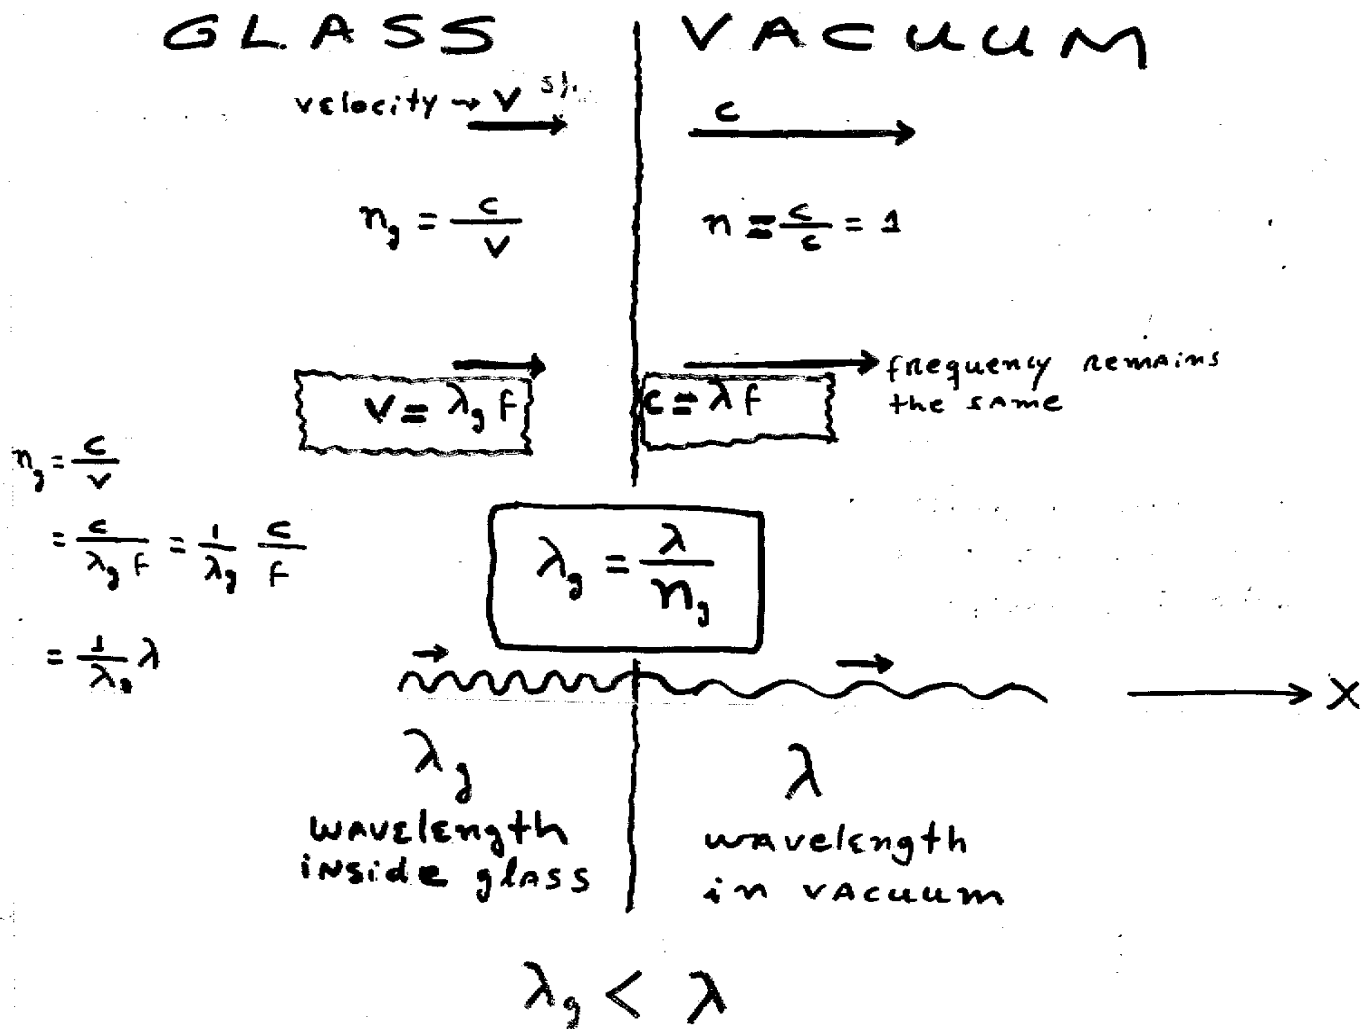 GLASS VACUUM
velocity → v c
n_g = c/v n = c/c = 1
v = λ_g f c = λ f frequency remains
the same
n_g = c/v
= c/(λ_g f) = 1/λ_g c/f
= 1/λ_g λ
λ_g = λ/n_g
X
λ_g λ
wavelength wavelength
inside glass in vacuum
λ_g < λ